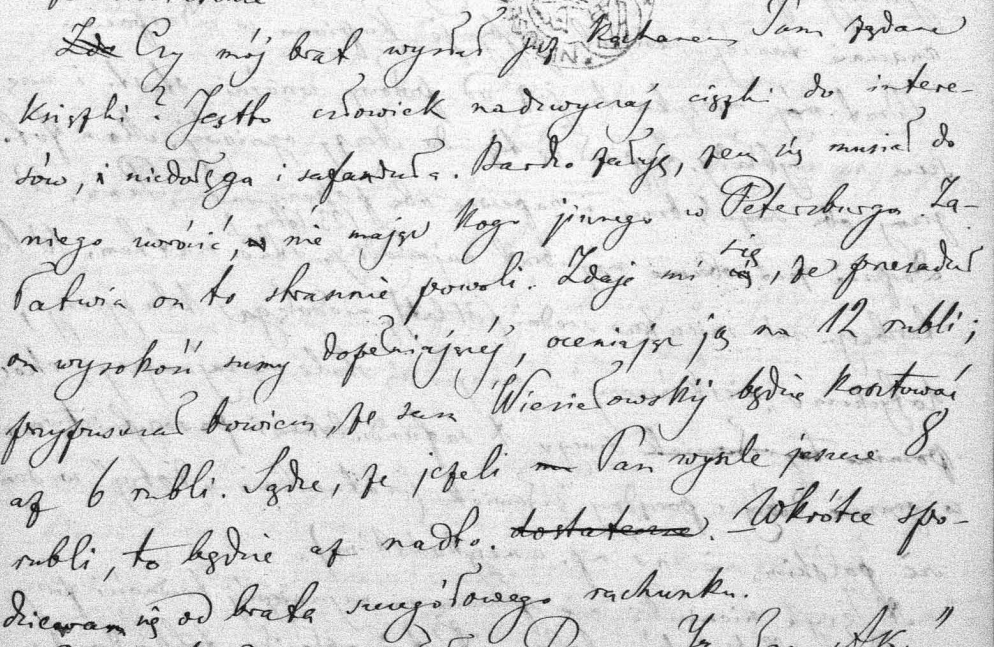 Czy mój brat wysłał już Kochanemu Panu żądane
książki? Jestto człowiek nadzwyczaj ciężki do intere-
sów, i niedołęga i safanduła. Bardzo żałuję, żem się musiał do
niego zwrócić, nie mając kogo innego w Petersburgu. Za-
łatwia on to strasznie powoli. Zdaje mi się, że przesadził
on wysokość sumy dopełniającej, oceniając ją na 12 rubli;
przypuszczał bowiem, że sam Wiesiełowskij będzie kosztować
aż 6 rubli. Sądzę, że jeżeli Pan wyszle jeszcze 8
rubli, to będzie aż nadto. dostateczne. Wkrótce spo-
dziewam się od brata szczegółowego rachunku.